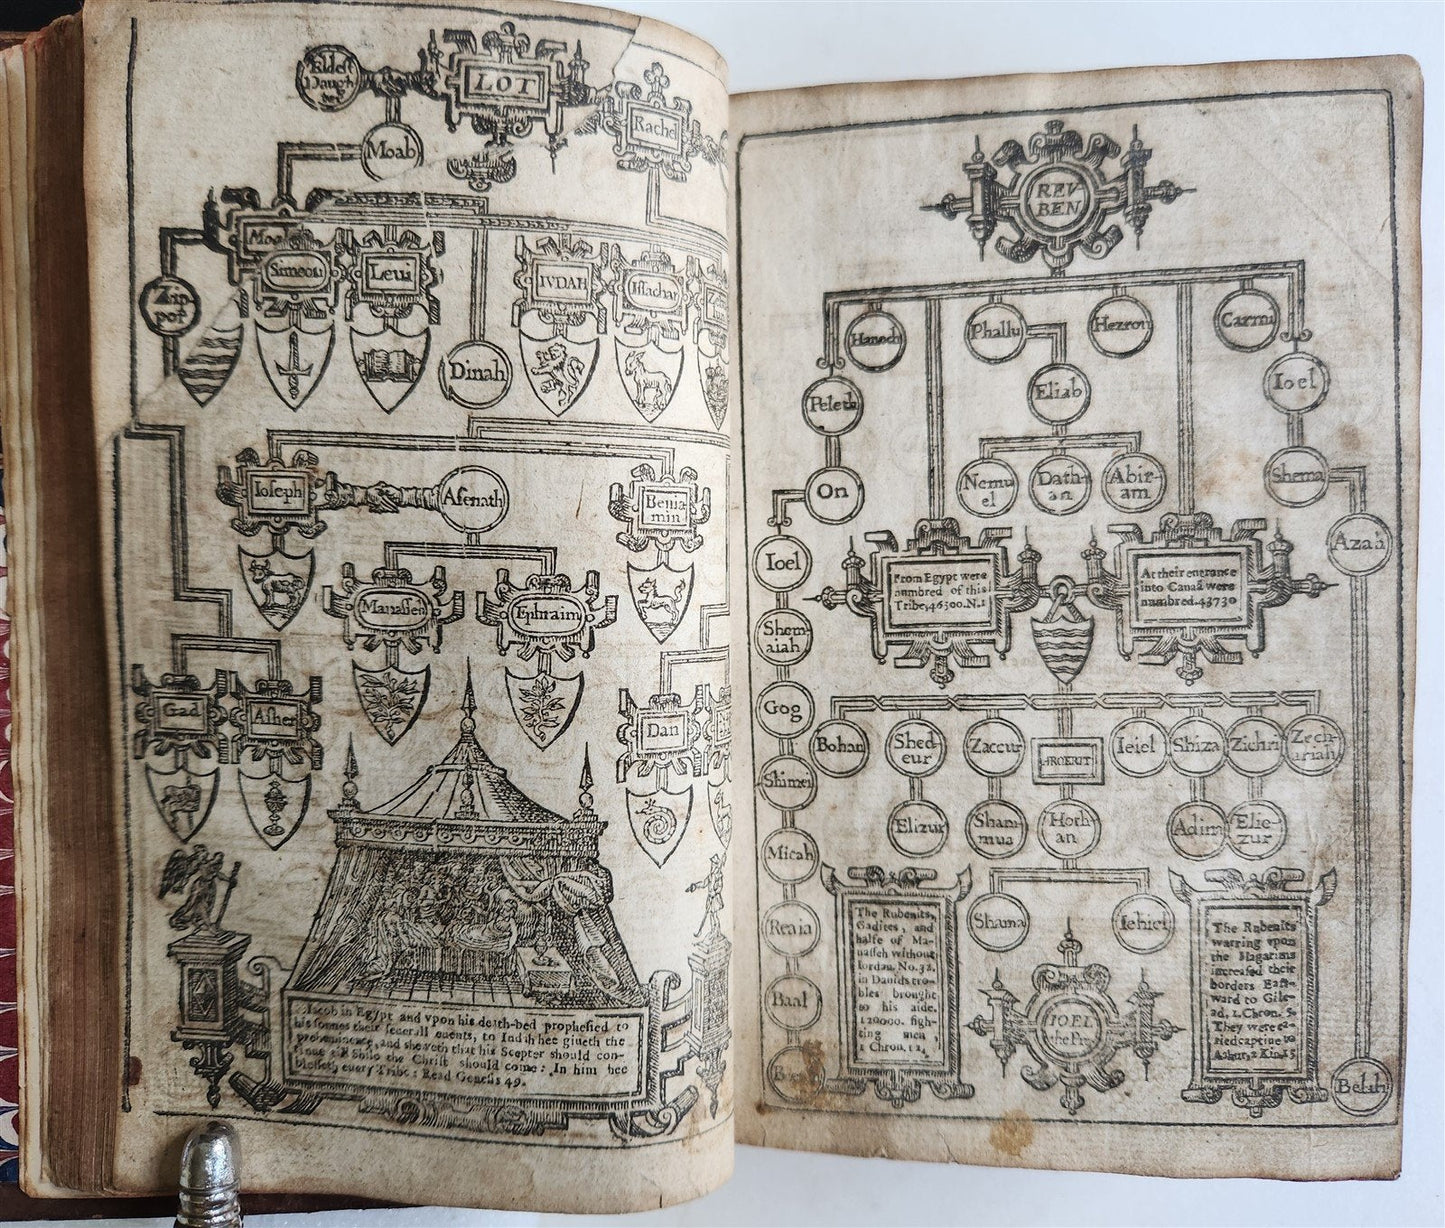 Eldest
Daugh
ter
LOT
Rachel
Moab
Moab
Simeon
Leui
IVDAH
Issachar
Zip-
por
Dinah
Ioseph
Asenath
Benia
min
Manasseh
Ephraim
Gad
Asher
Dan
Iacob in Egypt and vpon his death-bed prophesied to
his sonnes their seuerall euents, to Iudah hee giueth the
preheminence, and sheweth that his Scepter should con-
tinue till Shilo the Christ should come: In him bee
blessed euery Tribe: Read Genesis 49.
REV-
BEN
Hanoch
Phallu
Hezron
Carmi
Peleth
Eliab
Ioel
On
Nemu
el
Dath-
an
Abir-
am
Shema
Ioel
From Egypt were
numbred of this
Tribe,46500.N.1
At their entrance
into Canaā were
numbred.43730
Azah
Shem-
aiah
Gog
Bohan
Shed-
eur
Zaccur
Ieiel
Shiza
Zichri
Zech-
ariah
Shimei
Elizur
Sham-
mua
Hoth-
an
Adim
Elie-
zur
Micah
Reaia
Shama
Iehiel
The Rubenits,
Gadites, and
halfe of Ma-
nasseh without
Iordan. No.32.
in Dauids tro-
bles brought
to his aide.
120000. figh-
ting men,
1 Chron. 12,
The Rubenits
warring vpon
the Hagarims
increased their
borders East-
ward to Gile-
ad, 1. Chron. 5.
They were ca-
ried captiue to
Ashur, 2 Kin.15
Baal
IOEL
the Pro
Belah